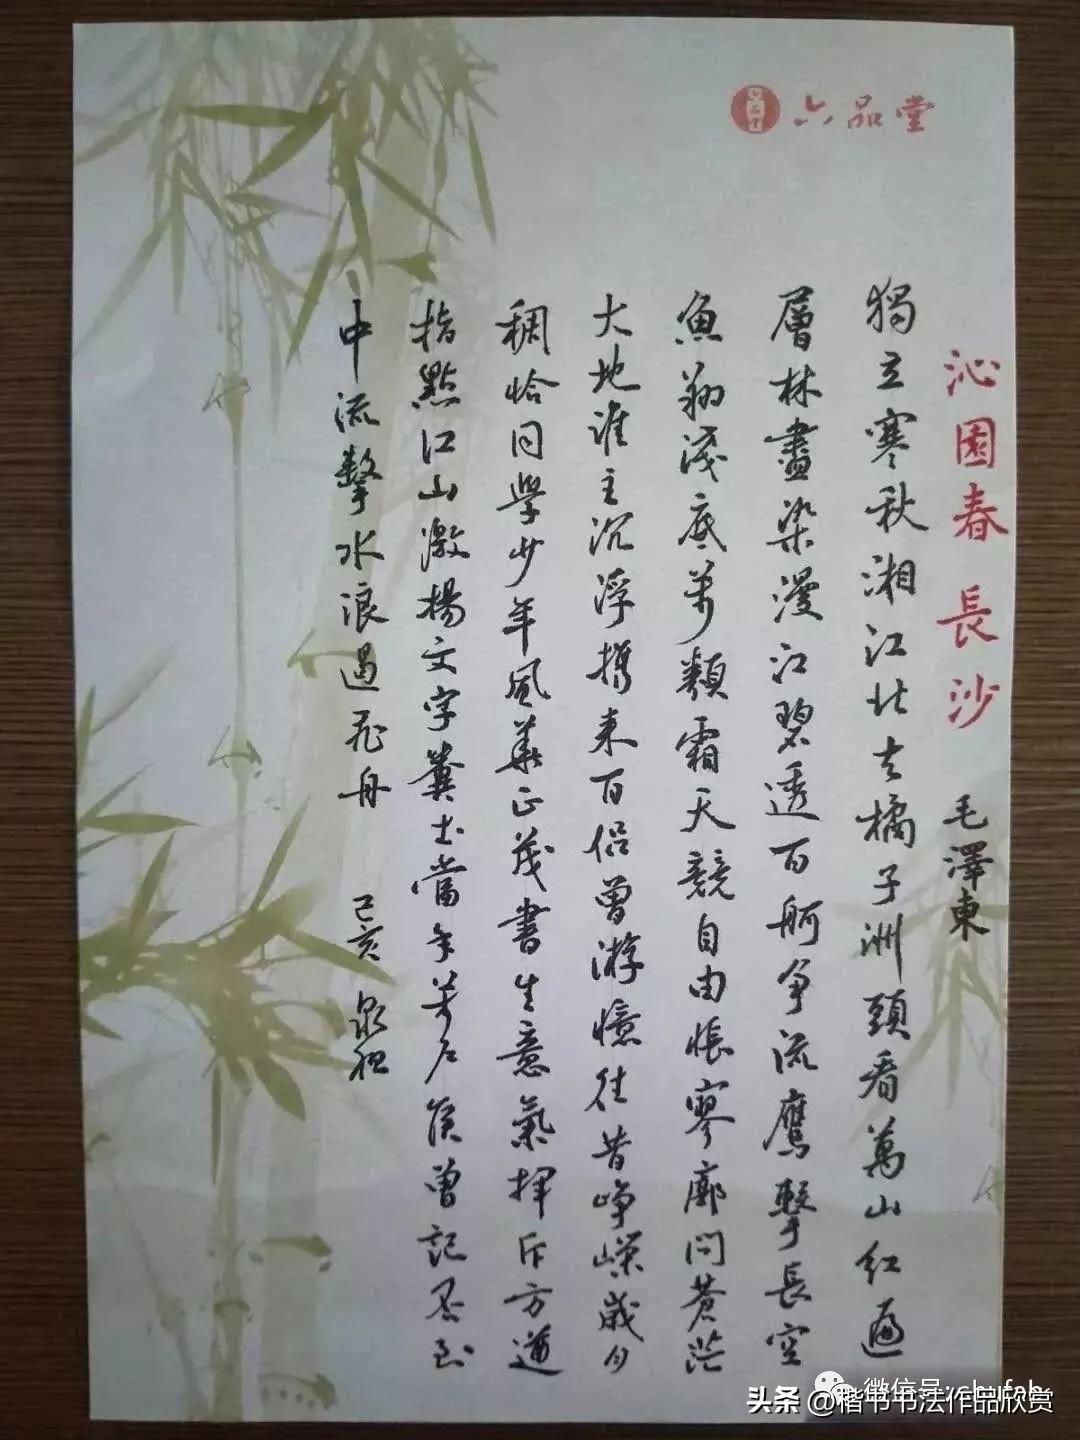 六品堂
沁園春 長沙 毛澤東
獨立寒秋湘江北去橘子洲頭看萬山紅遍
層林盡染漫江碧透百舸爭流鷹擊長空
魚翔淺底萬類霜天競自由悵寥廓問蒼茫
大地誰主沉浮攜來百侶曾游憶往昔崢嶸歲月
稠恰同學少年風華正茂書生意氣揮斥方遒
指點江山激揚文字糞土當年萬戶侯曾記否到
中流擊水浪遏飛舟 己亥
微信号:
头条 @楷书书法作品欣赏